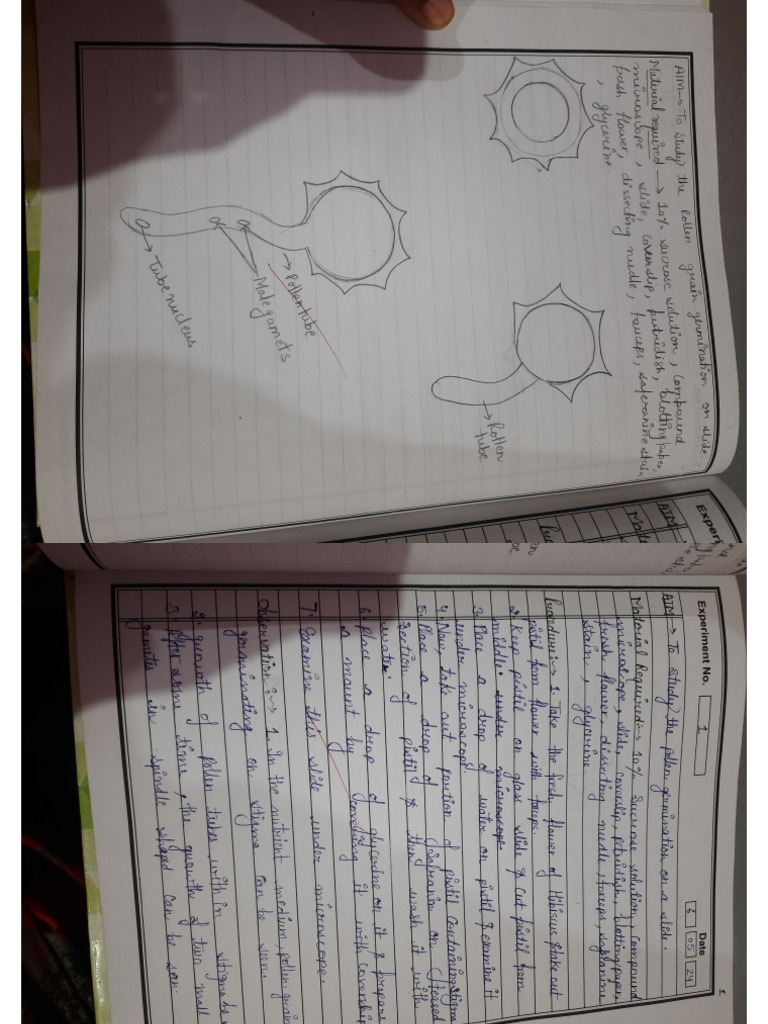 AIM → To study the Pollen grain germination on slide.
Material required → 10% sucrose solution, compound
microscope, slide, coverslip, petridish, blotting paper,
fresh flower, dissecting needle, forceps, saferanine stain
, glycerine.
→ Pollen
tube
→ Pollen tube
Malegamets
→ Tube nucleus
Experi
AIM
Mate
Experiment No. 1
Date
6 05 24
1.
AIM → To study the pollen germination on a slide.
Material Required → 10% sucrose solution, compound
microscope, slide, coverslip, petridish, blotting paper,
fresh flower, dissecting needle, forceps, saplanine
stain, glycerine
Procedure → 1. Take the fresh flower of Hibiscus & take out
pistil from flower with forceps.
2. Keep pistil on glass slide & cut pistil from
middle under microscope.
3. Place a drop of water on pistil & examine it
under microscope.
4. Now, take out portion of pistil containing stigma
5. Place a drop of safranin on
section of pistil & then wash it with
water.
6. Place a drop of glycerine on it & prepare
a mount by covering it with coverslip
7. Examine this slide under microscope.
Observation :→ 1. In the nutrient medium, pollen grain
germinating on stigma can be seen.
2. growth of pollen tubes with in
3. After some time, the growth of two mall
gametes in spindle shaped can be seen.